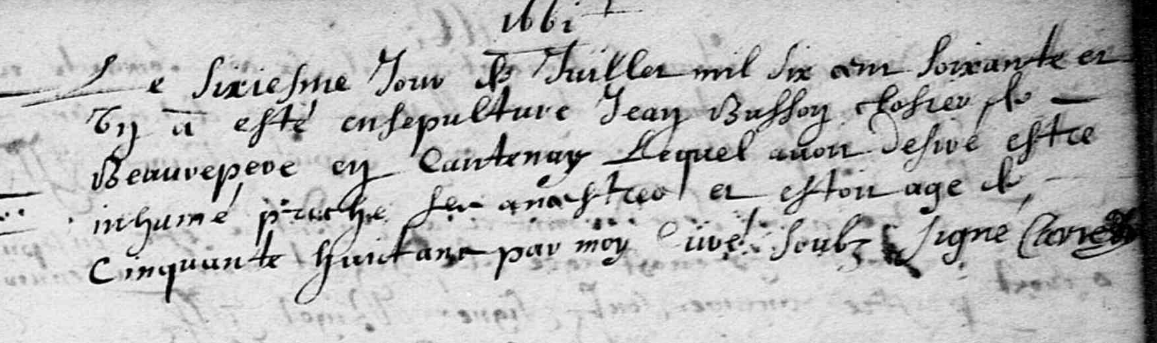 1661
Le sixiesme Jour de Juillet mil six cent soixante et
Un a esté ensepulturé Jean Busson closier de
Beaurepere en Cantenay Lequel avoit desiré estre
inhumé proche ses ancestres et estoit agé de
Cinquante huict ans par moy Curé soubz signé